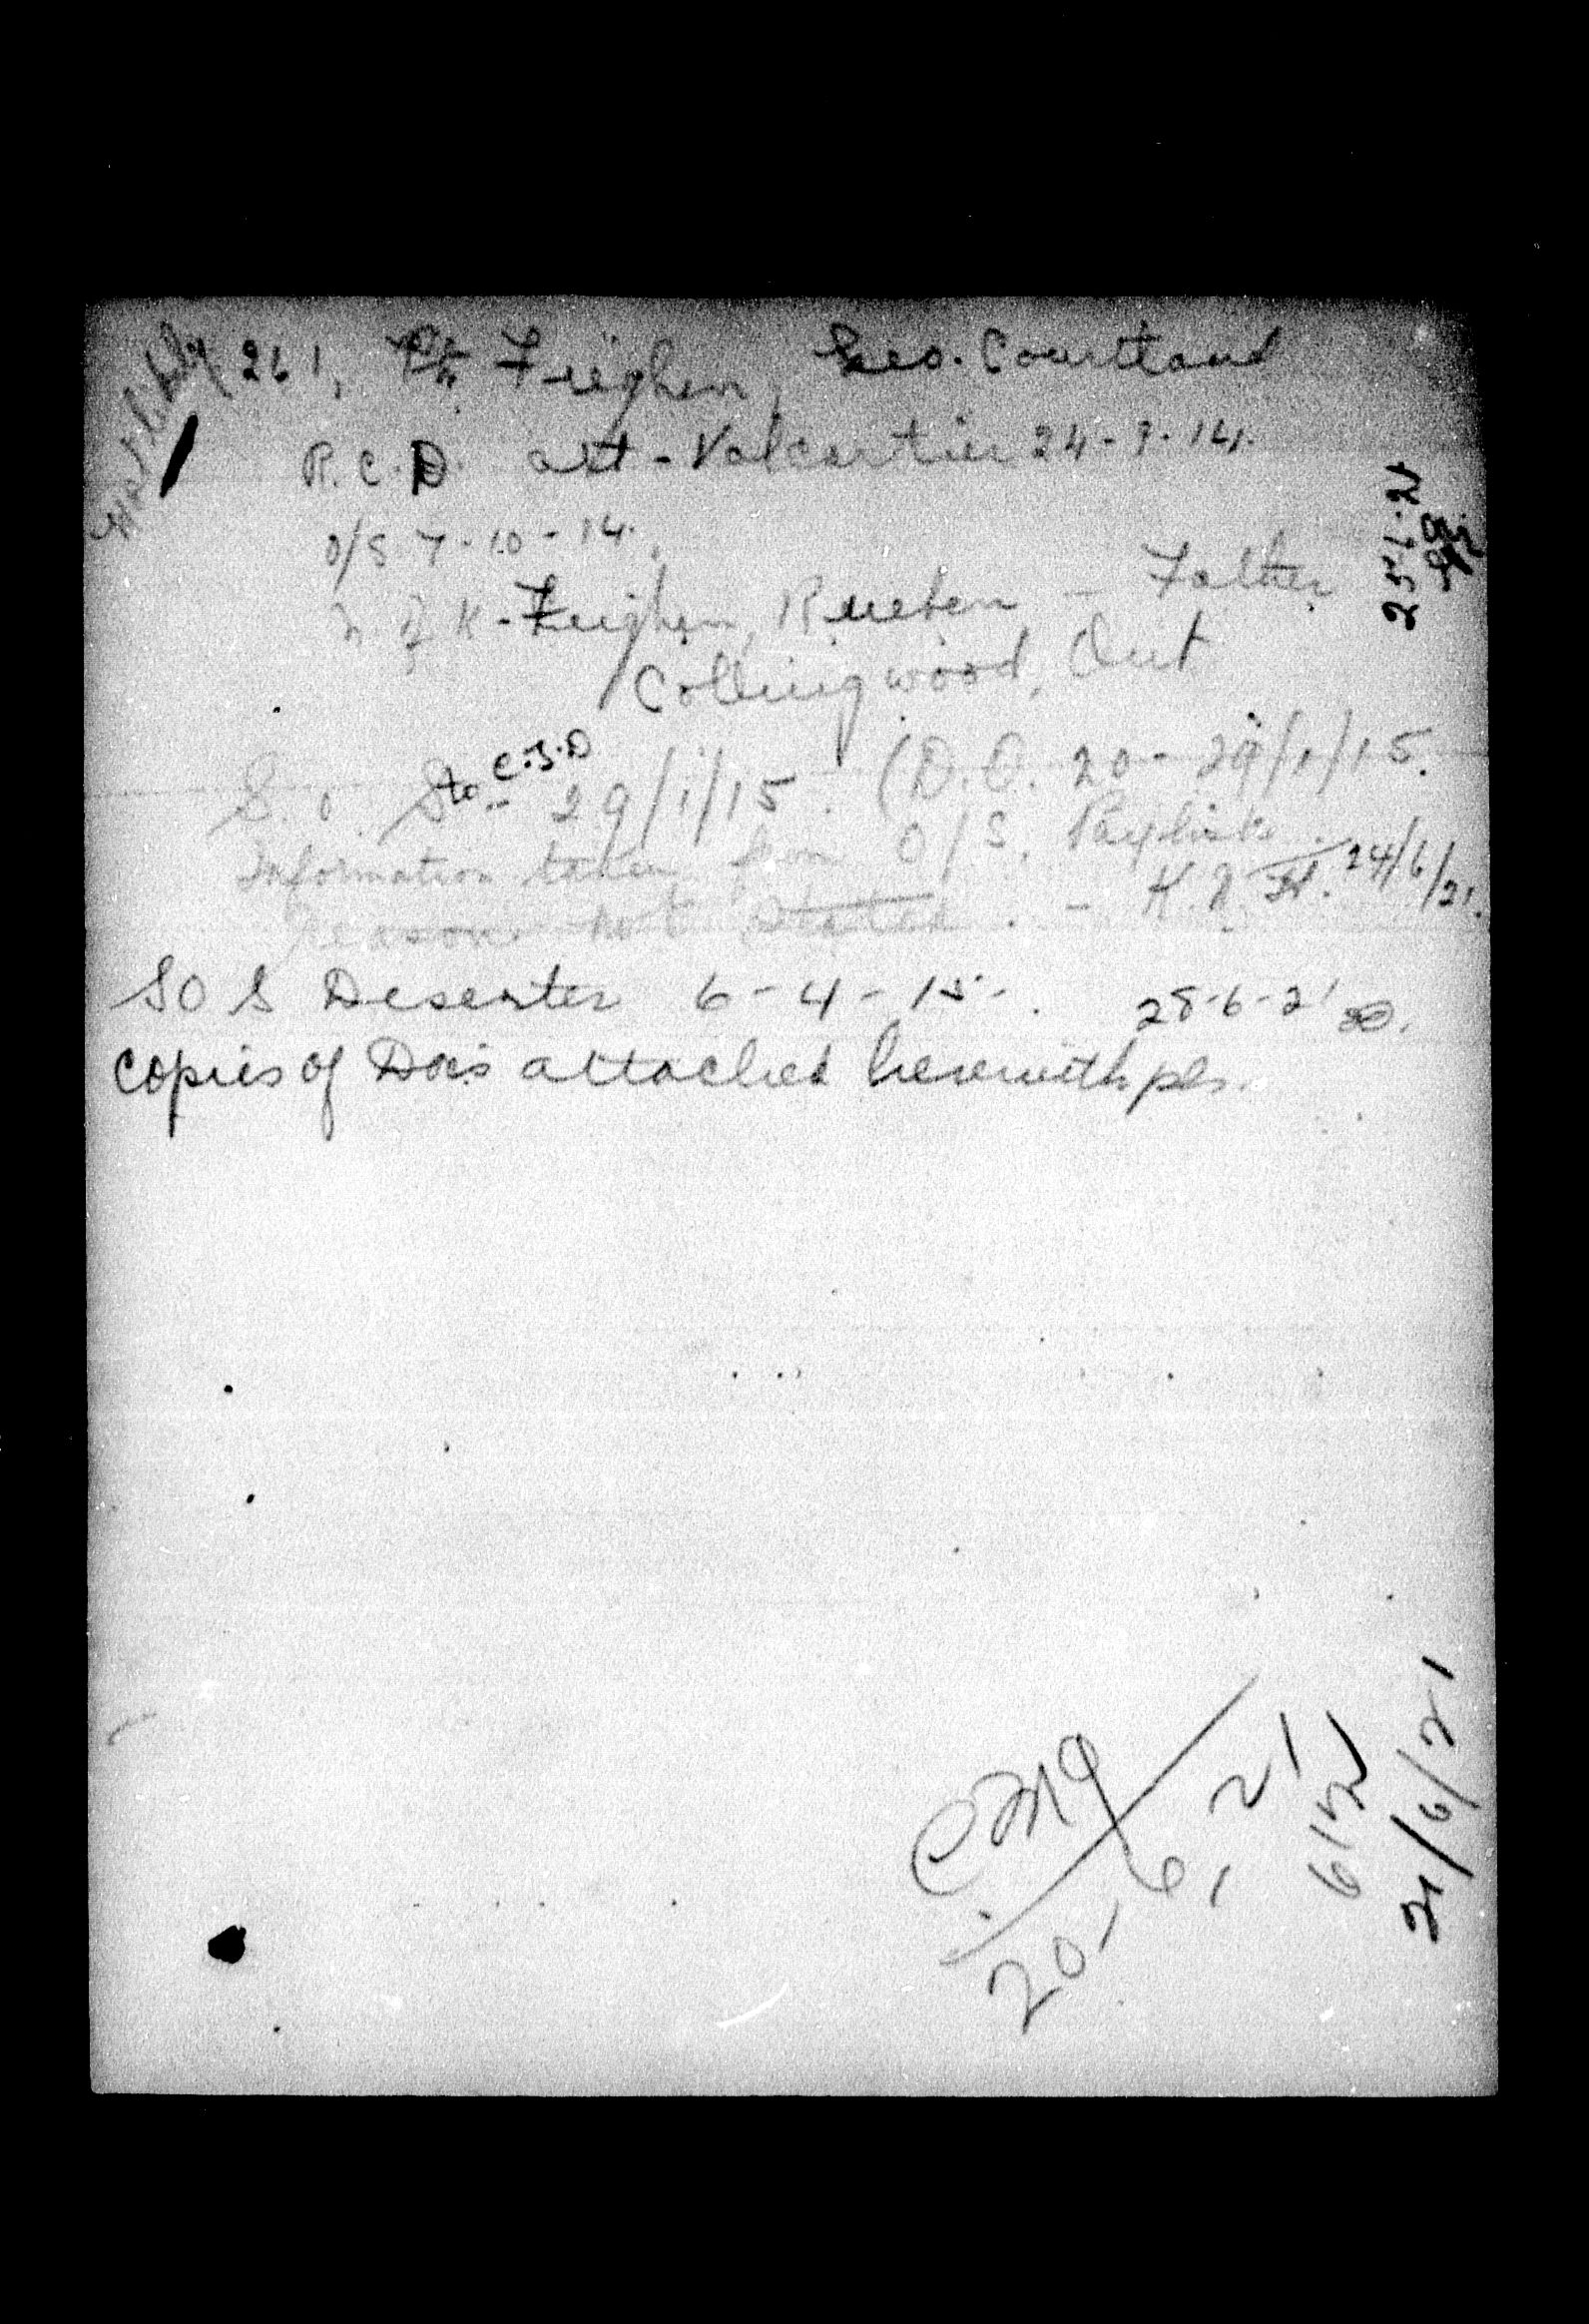 261, Pte. Feighen, Geo. Courtland
R.C.D. att - Valcartier 24-9-14.
O/S 7-10-14.
N. of K - Feighen, Rueben - Father
Collingwood, Ont
S. O. S. to C.T.D - 29/1/15. (D.O. 20 - 29/1/15.
Information taken from O/S. Paylists.
Reason not Stated. - 24/6/21.
SOS Deserter 6-4-15-. 28-6-21
Copies of Docs attached herewith pls.
20/6/21
21/6/21